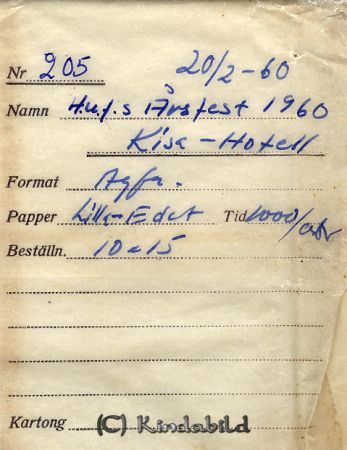 Nr 205 20/2-60
Namn H.u.f.s Årsfest 1960
Kisa-Hotell
Format Agfa.
Papper Lilla-Edet Tid 1000/
Beställn. 10 15
Kartong
(C) Kindabild